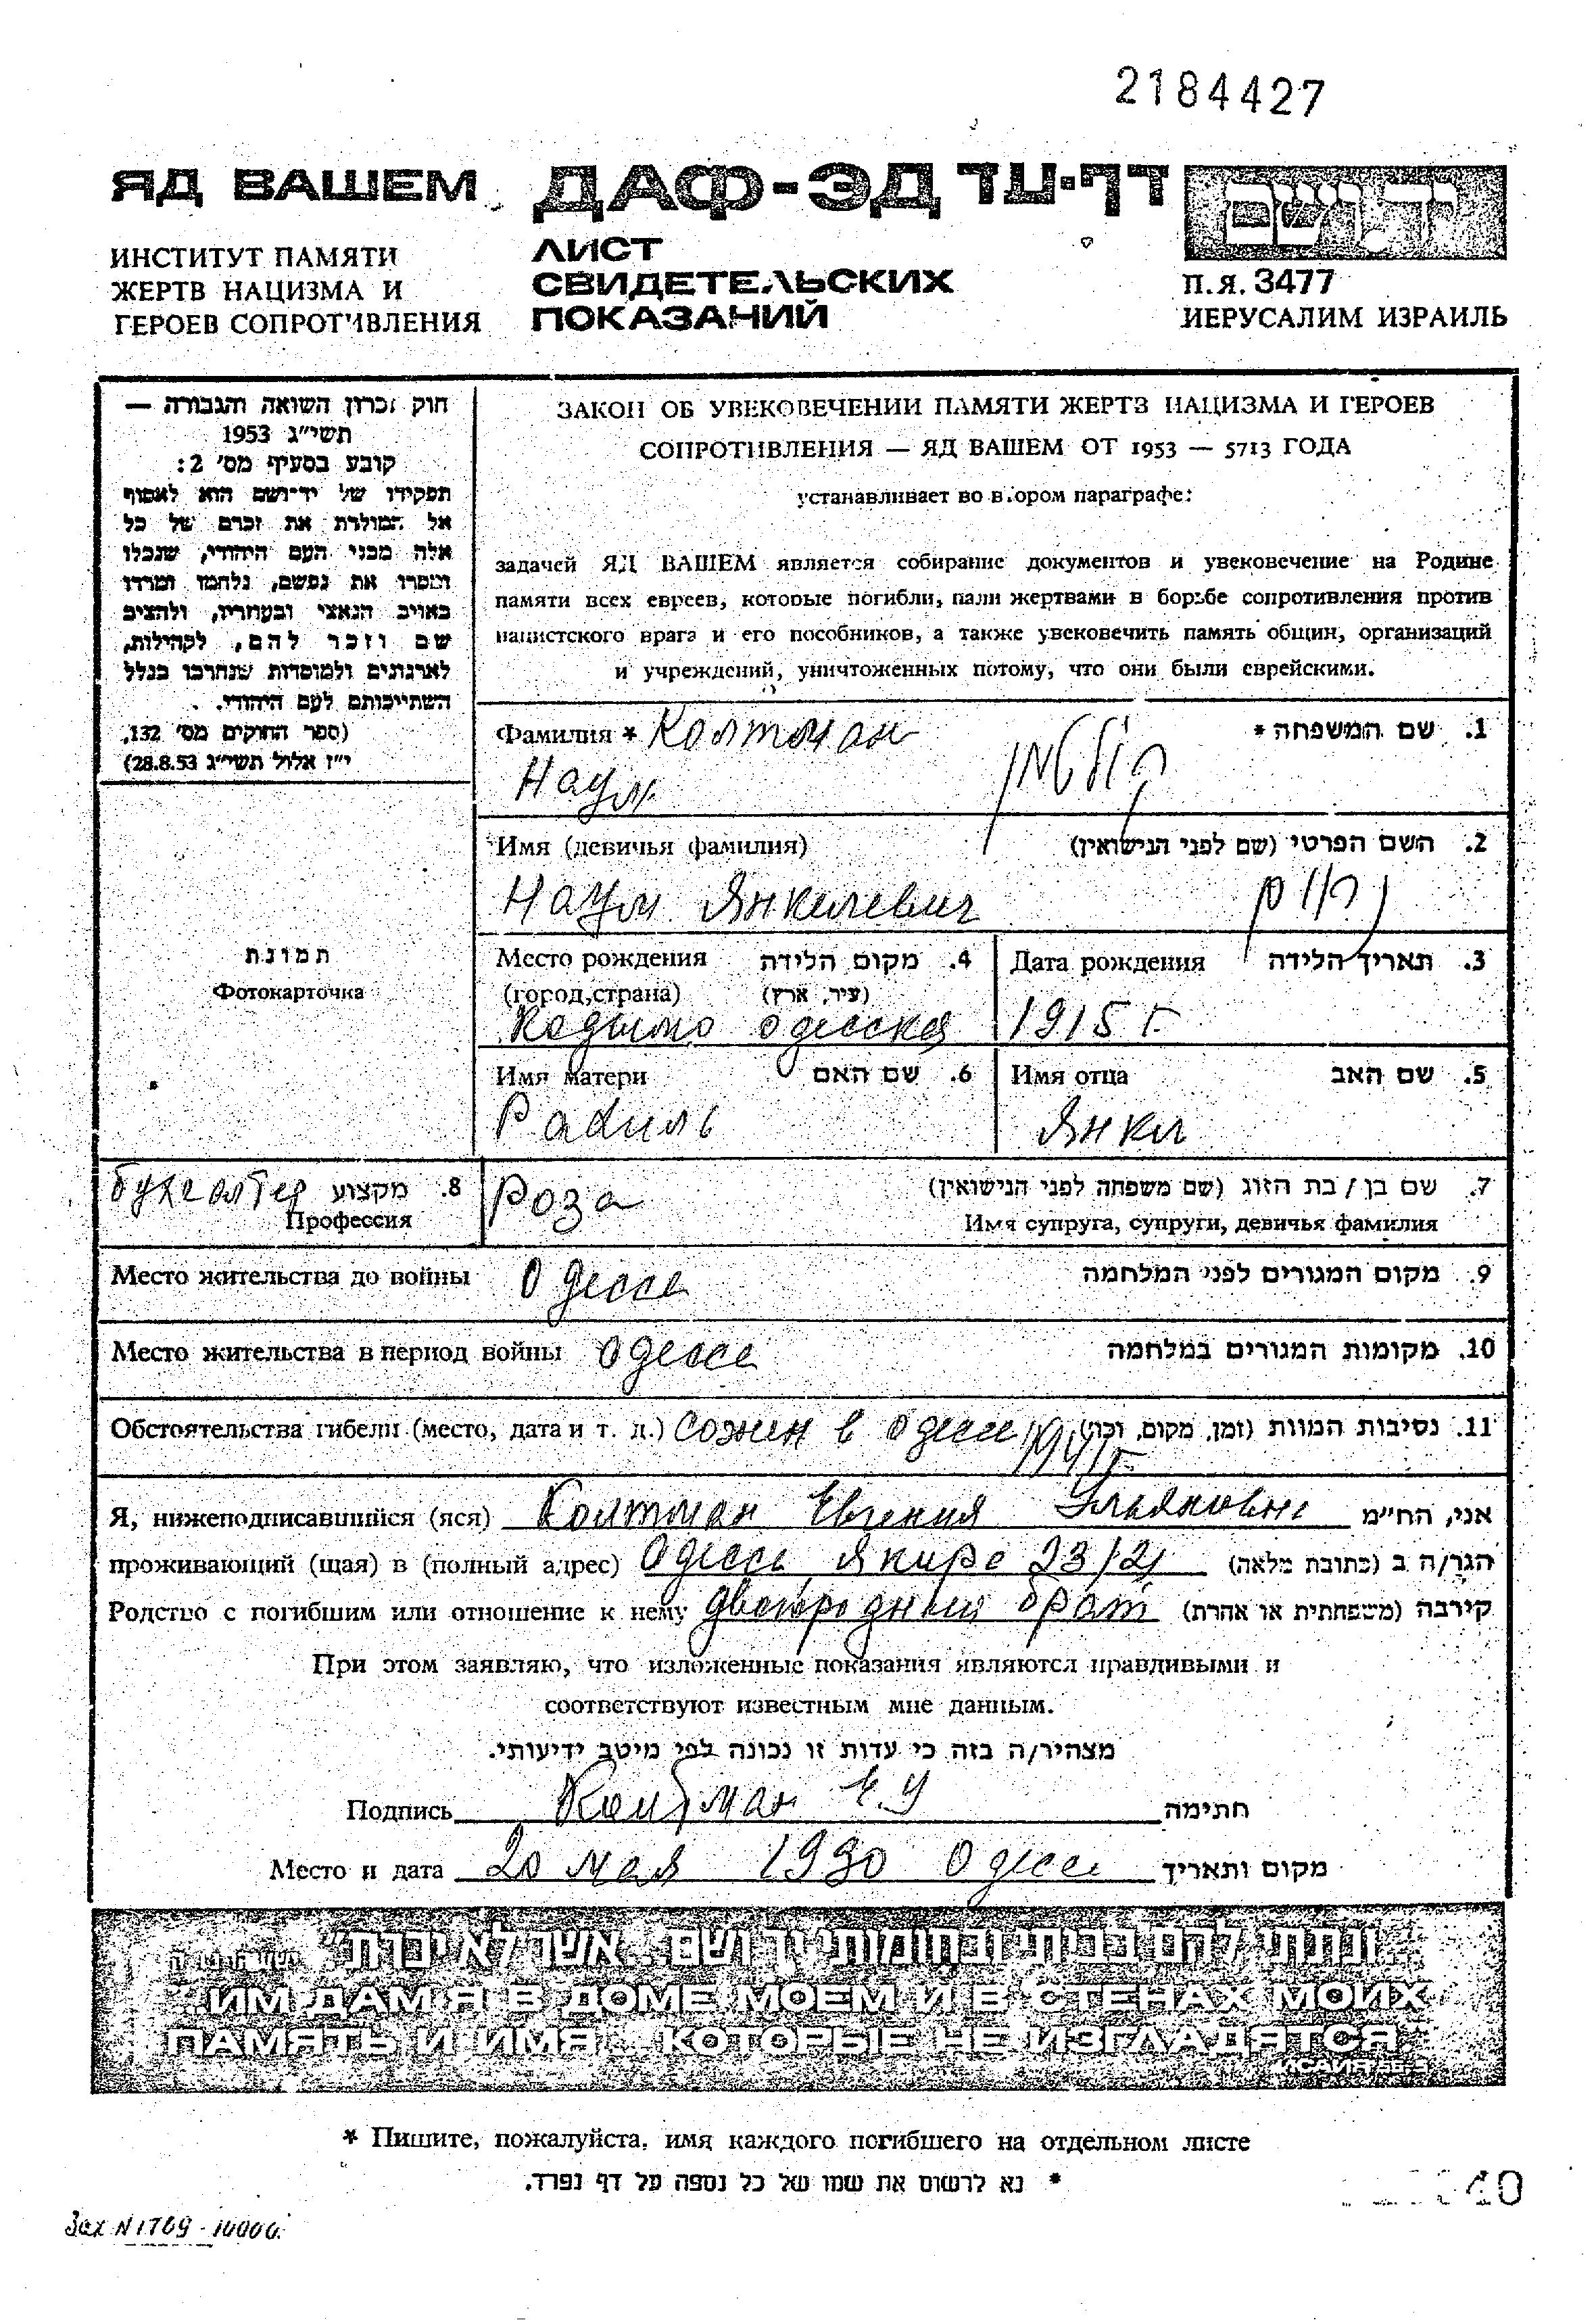 2184427
ЯД ВАШЕМ
ДАФ-ЭД דף-עד
יד ושם
ИНСТИТУТ ПАМЯТИ
ЖЕРТВ НАЦИЗМА И
ГЕРОЕВ СОПРОТИВЛЕНИЯ
ЛИСТ
СВИДЕТЕЛЬСКИХ
ПОКАЗАНИЙ
П.Я. 3477
ИЕРУСАЛИМ ИЗРАИЛЬ
חוק זכרון השואה והגבורה —
תשי״ג 1953
קובע בסעיף מס׳ 2:
תפקידו של יד־ושם הוא לאסוף
אל המולדת את זכרם של כל
אלה מבני העם היהודי, שנפלו
ומסרו את נפשם, נלחמו ומרדו
באויב הנאצי ובעוזריו, ולהציב
שם וזכר להם, לקהילות,
לארגונים ולמוסדות שנחרבו בגלל
השתייכותם לעם היהודי.
(ספר החוקים מס׳ 132,
י״ז אלול תשי״ג 28.8.53)
ЗАКОН ОБ УВЕКОВЕЧЕНИИ ПАМЯТИ ЖЕРТВ НАЦИЗМА И ГЕРОЕВ
СОПРОТИВЛЕНИЯ — ЯД ВАШЕМ ОТ 1953 — 5713 ГОДА
устанавливает во втором параграфе:
задачей ЯД ВАШЕМ является собирание документов и увековечение на Родине
памяти всех евреев, которые погибли, пали жертвами в борьбе сопротивления против
нацистского врага и его пособников, а также увековечить память общин, организаций
и учреждений, уничтоженных потому, что они были еврейскими.
Фамилия * Колтман 1. שם המשפחה *
Наум קולטמן
Имя (девичья фамилия) 2. השם הפרטי (שם לפני הנישואין)
Наум Янкилевич נחום
Место рождения 4. מקום הלידה Дата рождения 3. תאריך הלידה
(город, страна) (עיר, ארץ)
Кодыма одесска 1915 г.
Имя матери 6. שם האם Имя отца 5. שם האב
Рахиль Янкл
תמונת
Фотокарточка
бухгалтер 8. מקצוע
Профессия
Роза 7. שם בן / בת הזוג (שם משפחה לפני הנישואין)
Имя супруга, супруги, девичья фамилия
Место жительства до войны Одесса 9. מקום המגורים לפני המלחמה
Место жительства в период войны Одесса 10. מקומות המגורים במלחמה
Обстоятельства гибели (место, дата и т. д.) сожжен в одессе 1941 г. 11. נסיבות המוות (זמן, מקום, וכו׳)
Я, нижеподписавшийся (яся) Колтман Евгения Ульяновна אני, הח״מ
проживающий (щая) в (полный адрес) Одесса Якира 23/21 הגר/ה ב (כתובת מלאה)
Родство с погибшим или отношение к нему двоюродный брат קירבה (משפחתית או אחרת)
При этом заявляю, что изложенные показания являются правдивыми и
соответствуют известным мне данным.
מצהיר/ה בזה כי עדות זו נכונה לפי מיטב ידיעותי.
Подпись Колтман Е.У חתימה
Место и дата 20 мая 1990 Одесса מקום ותאריך
״...ונתתי להם בביתי ובחומותי יד ושם... אשר לא יכרת״
״ИМ ДАМ Я В ДОМЕ МОЕМ И В СТЕНАХ МОИХ
ПАМЯТЬ И ИМЯ... КОТОРЫЕ НЕ ИЗГЛАДЯТСЯ״
ИСАЙЯ 56:5
* Пишите, пожалуйста, имя каждого погибшего на отдельном листе
* נא לרשום את שמו של כל נספה על דף נפרד.
40
Зак N 1769 - 10000.